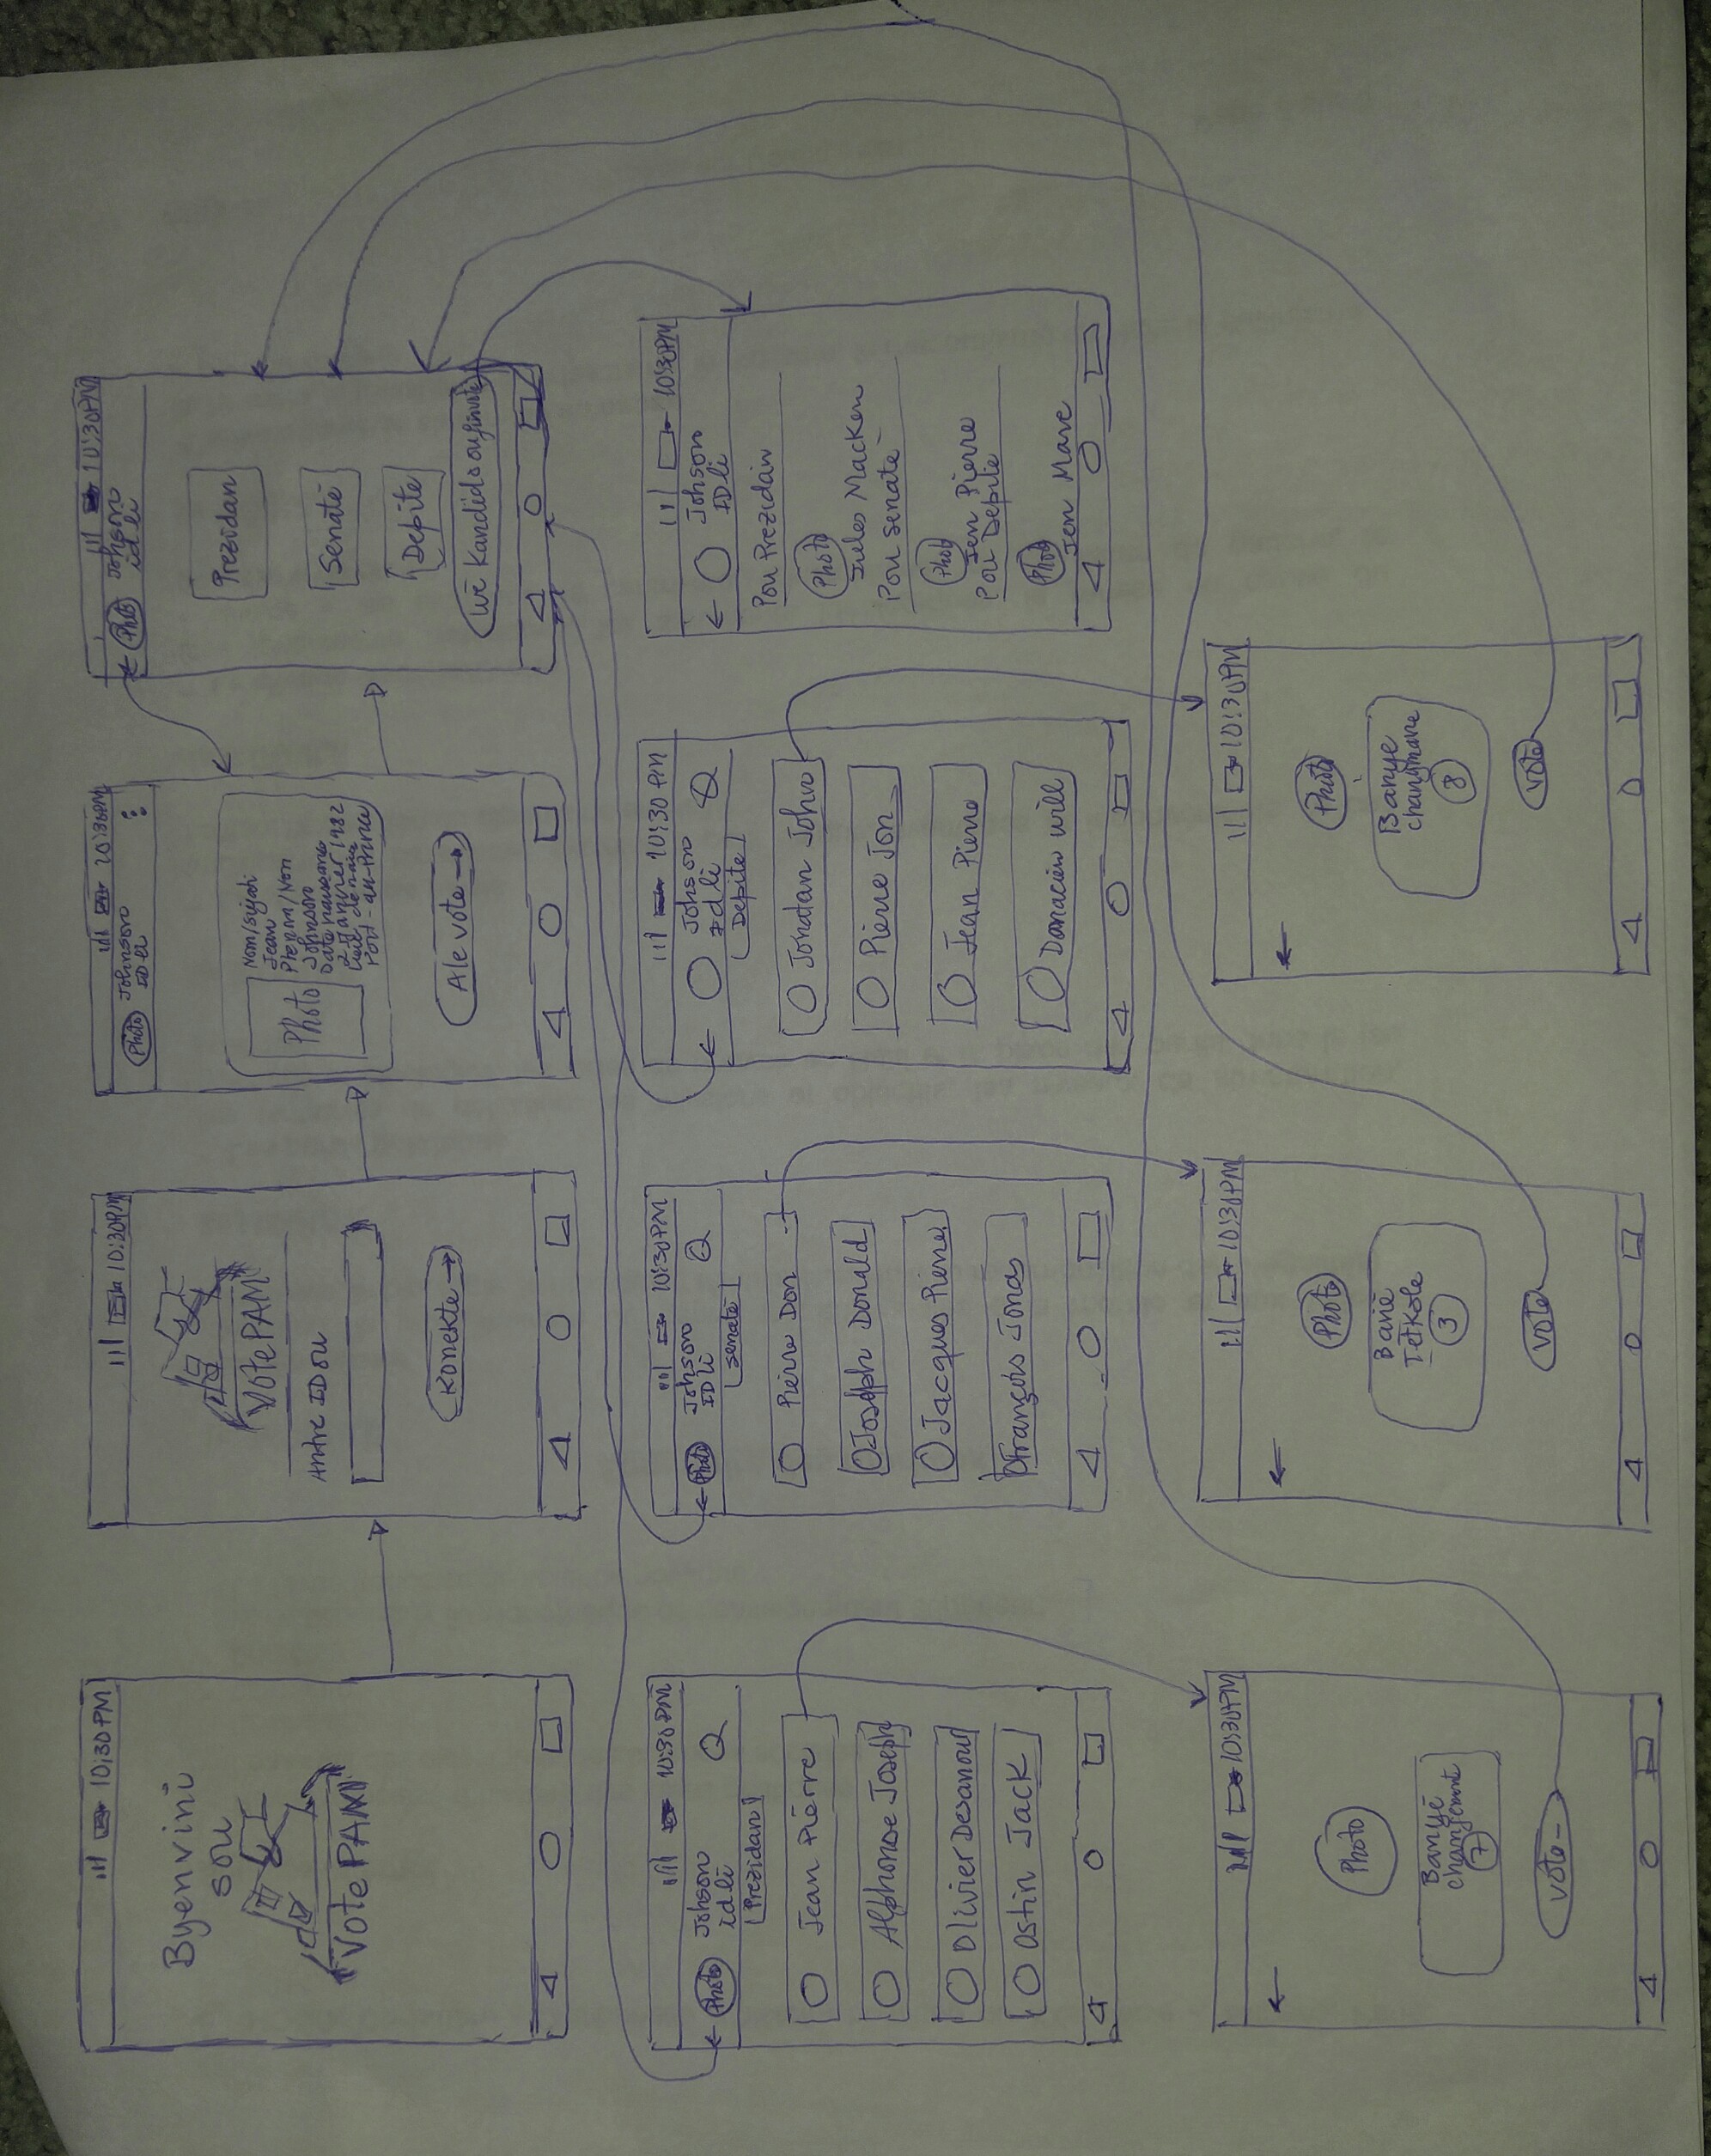 10:30PM
Byenvini
sou
Vote PAM
10:30PM
Vote PAM
Antre ID ou
Konekte
10:30PM
Photo
Johnson
ID li
Photo
Nom/siyati
Jean
Prenom/Non
Johnson
Date naissans
2 Janvier 1982
Port-au-Prince
Ale vote
10:30PM
Photo
Johson
id li
Prezidan
Senatè
Depite
Wè Kandida ou
10:30PM
Photo
Johson
id li
Prezidan
Jean Pierre
Alphonse Joseph
Olivier Desanour
Ostin Jack
10:30PM
Photo
Johson
ID li
Senatè
Pierre Don
Joseph Donald
Jacques Pierre
François Jonas
10:30 PM
Johson
Id li
Depite
Jonatan John
Pierre Jon
Jean Pierre
Donacien will
10:30PM
Johson
ID li
Pou Prezidan
Photo
Jules Macken
Pou Senatè
Phot
Jen Pierre
Pou Depite
Photo
Jen Marc
10:30PM
Photo
Banyè
chanjement
7
vote
10:30PM
Photo
Banè
Tèt Kole
3
vote
10:30PM
Photo
Banye
8
vote